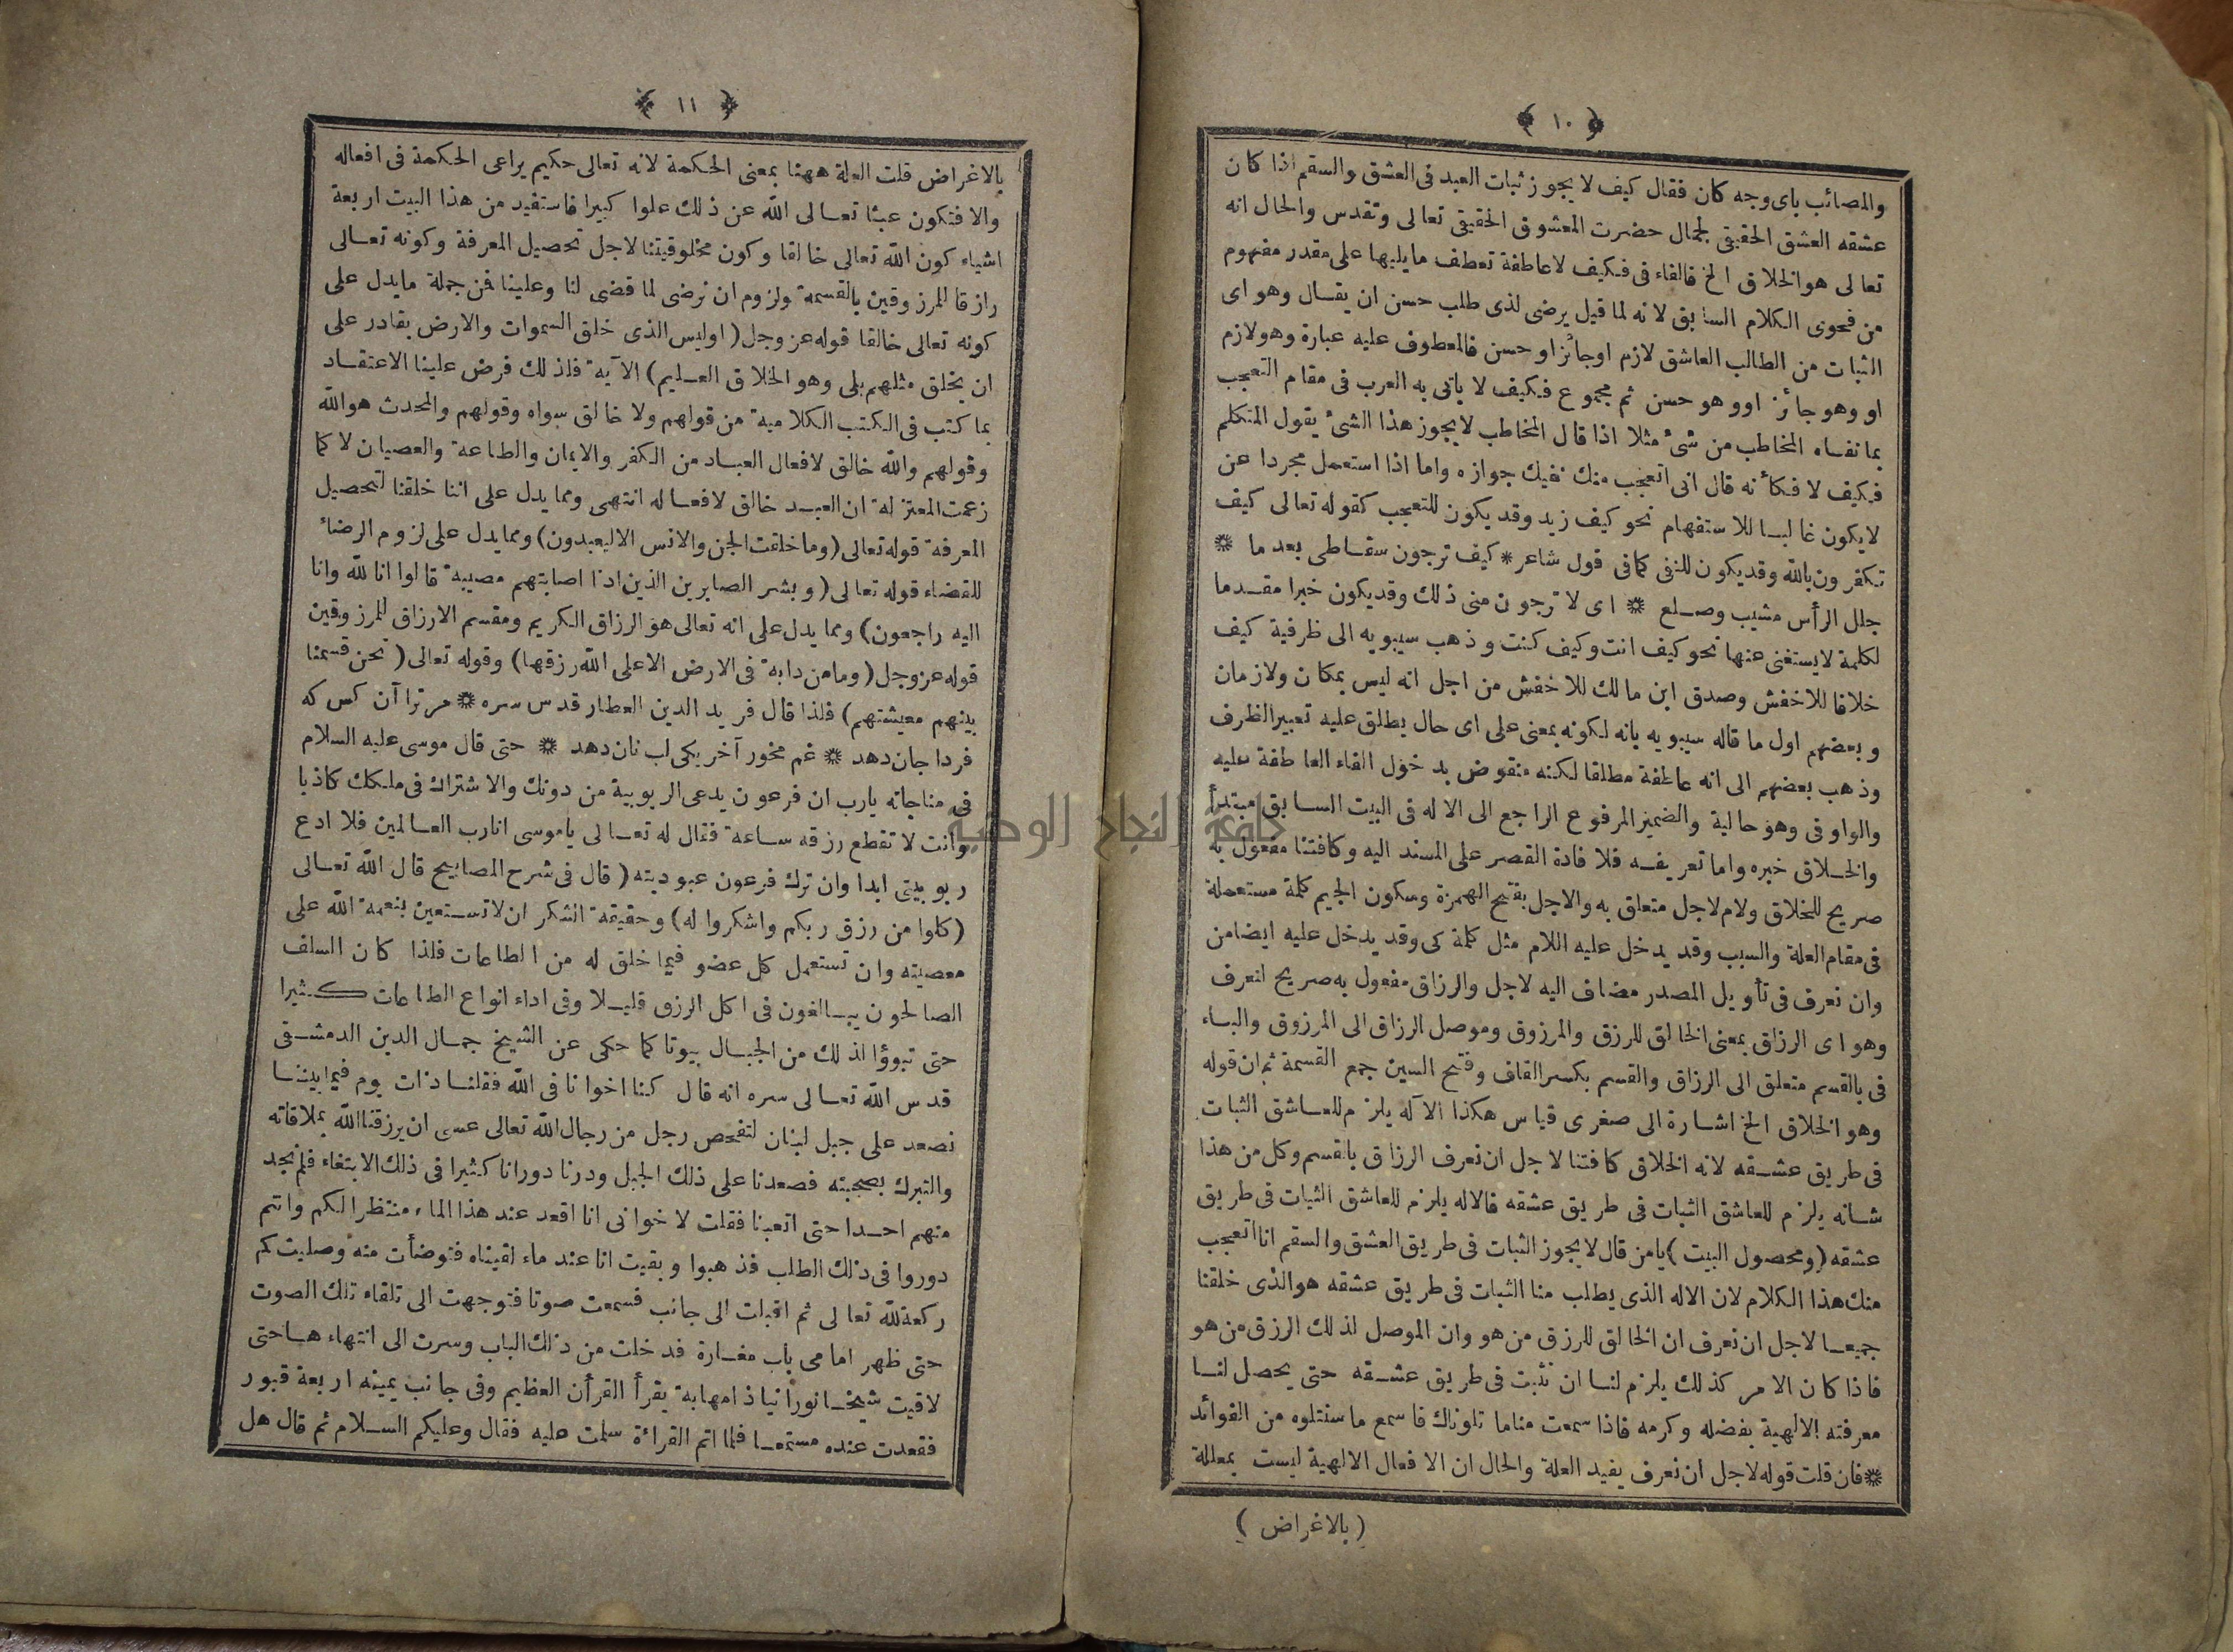 ﴿ ١٠ ﴾
والمصائب باى وجه كان فقال كيف لا يجوز ثبات العبد فى العشق والسقم اذا كان
عشقه العشق الحقيقى لجمال حضرت المعشوق الحقيقى تعالى وتقدس والحال انه
تعالى هو الخلاق الخ فالفاء فى فكيف لا عاطفة تعطف ما يليها على مقدر مفهوم
من فحوى الكلام السابق لانه لما قيل يرضى لذى طلب حسن ان يقال وهو اى
الثبات من الطالب العاشق لازم اوجائز او حسن فالمعطوف عليه عبارة وهو لازم
او وهو جائز اووهو حسن ثم مجموع فكيف لا يأتى به العرب فى مقام التعجب
بما نفاه المخاطب من شئ مثلا اذا قال المخاطب لا يجوز هذا الشئ يقول المتكلم
فكيف لا فكأنه قال انى اتعجب منك نفيك جوازه واما اذا استعمل مجردا عن
لا يكون غالبا للاستفهام نحو كيف زيد وقد يكون للتعجب كقوله تعالى كيف
تكفرون بالله وقد يكون للنفى كما فى قول شاعر * كيف ترجون سقاطى بعد ما *
جلل الرأس مشيب وصلع * اى لا ترجون منى ذلك وقد يكون خبرا مقدما
لكلمة لا يستغنى عنها نحو كيف انت وكيف كنت وذهب سيبويه الى ظرفية كيف
خلافا للاخفش وصدق ابن مالك للاخفش من اجل انه ليس بمكان ولازمان
وبعضهم اول ما قاله سيبويه بانه لكونه بمعنى على اى حال يطلق عليه تعبير الظرف
وذهب بعضهم الى انه عاطفة مطلقا لكنه منقوض بدخول الفاء العاطفة عليه
والواو فى وهو حالية والضمير المرفوع الراجع الى الاله فى البيت السابق مبتدأ
والخلاق خبره واما تعريفه فلا فادة القصر على المسند اليه وكافتنا مفعول به
صريح للخلاق ولام لاجل متعلق به والاجل بفتح الهمزة وسكون الجيم كلمة مستعملة
فى مقام العلة والسبب وقد يدخل عليه اللام مثل كلمة كى وقد يدخل عليه ايضا من
وان نعرف فى تأويل المصدر مضاف اليه لاجل والرزاق مفعول به صريح لنعرف
وهو اى الرزاق بمعنى الخالق للرزق والمرزوق وموصل الرزاق الى المرزوق والباء
فى بالقسم متعلق الى الرزاق والقسم بكسر القاف وفتح السين جمع القسمة ثم ان قوله
وهو الخلاق الخ اشارة الى صغرى قياس هكذا الآله يلزم للعاشق الثبات
فى طريق عشقه لانه الخلاق كافتنا لاجل ان نعرف الرزاق بالقسم وكل من هذا
شانه يلزم للعاشق الثبات فى طريق عشقه فالاله يلزم للعاشق الثبات فى طريق
عشقه (ومحصول البيت) يامن قال لا يجوز الثبات فى طريق العشق والسقم انا اتعجب
منك هذا الكلام لان الاله الذى يطلب منا الثبات فى طريق عشقه هو الذى خلقنا
جميعا لاجل ان نعرف ان الخالق للرزق من هو وان الموصل لذلك الرزق من هو
فاذا كان الامر كذلك يلزم لنا ان نثبت فى طريق عشقه حتى يحصل لنا
معرفته الالهية بفضله وكرمه فاذا سمعت مناما تلوناك فاسمع ما سنتلوه من الفوائد
* فان قلت قوله لاجل ان نعرف يفيد العلة والحال ان الافعال الالهية ليست بمعللة
(بالاغراض)
﴿ ١١ ﴾
بالاغراض قلت العلة ههنا بمعنى الحكمة لانه تعالى حكيم يراعى الحكمة فى افعاله
والا فتكون عبثا تعالى الله عن ذلك علوا كبيرا فاستفيد من هذا البيت اربعة
اشياء كون الله تعالى خالقا وكون مخلوقيتنا لاجل تحصيل المعرفة وكونه تعالى
رازقا للمرزوقين بالقسمة ولزوم ان نرضى لما قضى لنا وعلينا فمن جملة ما يدل على
كونه تعالى خالقا قوله عز وجل (اوليس الذى خلق السموات والارض بقادر على
ان يخلق مثلهم بلى وهو الخلاق العليم) الآية فلذلك فرض علينا الاعتقاد
بما كتب فى الكتب الكلامية من قولهم ولا خالق سواه وقولهم والمحدث هو الله
وقولهم والله خالق لافعال العباد من الكفر والايمان والطاعة والعصيان لا كما
زعمت المعتزلة ان العبد خالق لافعاله انتهى ومما يدل على اننا خلقنا لتحصيل
المعرفة قوله تعالى (وما خلقت الجن والانس الا ليعبدون) ومما يدل على لزوم الرضاء
للقضاء قوله تعالى (وبشر الصابرين الذين اذا اصابتهم مصيبة قالوا انا لله وانا
اليه راجعون) ومما يدل على انه تعالى هو الرزاق الكريم ومقسم الارزاق للمرزوقين
قوله عز وجل (وما من دابة فى الارض الا على الله رزقها) وقوله تعالى (نحن قسمنا
بينهم معيشتهم) فلذا قال فريد الدين العطار قدس سره * مر ترا آن كس كه
فردا جان دهد * غم مخور آخر يكى اب نان دهد * حتى قال موسى عليه السلام
فى مناجاته يارب ان فرعون يدعى الربوبية من دونك والاشتراك فى ملكك كاذبا
وانت لا تقطع رزقه ساعة فقال له تعالى ياموسى انارب العالمين فلا ادع
ربوبيتى ابدا وان ترك فرعون عبوديته (قال فى شرح المصابيح قال الله تعالى
(كلوا من رزق ربكم واشكروا له) وحقيقة الشكر ان لا تستعين بنعمة الله على
معصيته وان تستعمل كل عضو فيما خلق له من الطاعات فلذا كان السلف
الصالحون يبالغون فى اكل الرزق قليلا وفى اداء انواع الطاعات كثيرا
حتى تبوؤا لذلك من الجبال بيوتا كما حكى عن الشيخ جمال الدين الدمشقى
قدس الله تعالى سره انه قال كنا اخوانا فى الله فقلنا ذات يوم فيما بيننا
نصعد على جبل لبنان لتفحص رجل من رجال الله تعالى عسى ان يرزقنا الله بملاقاته
والتبرك بصحبته فصعدنا على ذلك الجبل ودرنا دورانا كثيرا فى ذلك الابتغاء فلم نجد
منهم احدا حتى اتعبنا فقلت لاخوانى انا اقعد عند هذا الماء منتظرا لكم وانتم
دوروا فى ذلك الطلب فذهبوا وبقيت انا عند ماء لقيناه فتوضأت منه وصليت كم
ركعة لله تعالى ثم اقبلت الى جانب فسمعت صوتا فتوجهت الى تلقاء تلك الصوت
حتى ظهر امامى باب مغارة فدخلت من ذلك الباب وسرت الى انتهاء هاحتى
لاقيت شيخا نورانيا ذا مهابة يقرأ القرأن العظيم وفى جانب يمينه اربعة قبور
فقعدت عنده مستمعا فلما اتم القراءة سلمت عليه فقال وعليكم السلام ثم قال هل
جامعة النجاح الوطنية